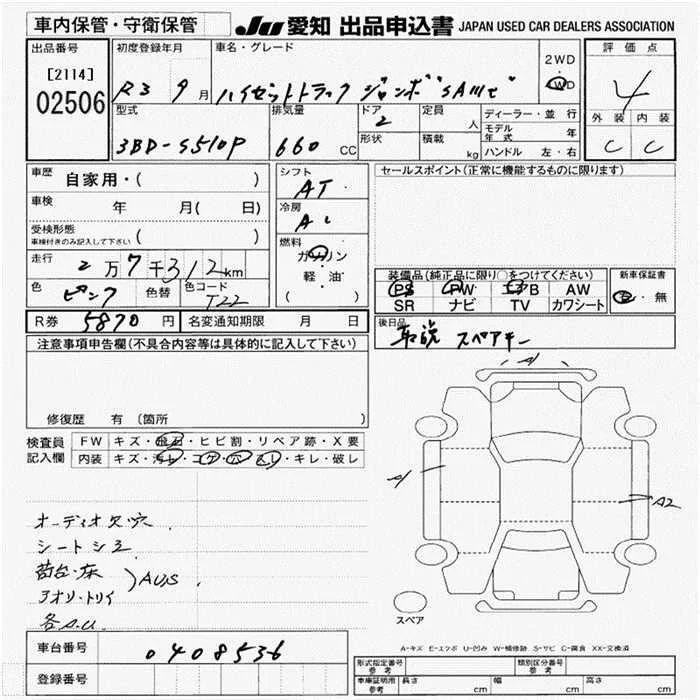 車内保管・守衛保管
JU 愛知 出品申込書 JAPAN USED CAR DEALERS ASSOCIATION
出品番号 初度登録年月 車名・グレード 2WD 評価点
[2114] 02506 R3 9月 ハイゼットトラック ジャンボ"SAIIIt" 4WD 4
外装 内装
C C
型式 排気量 ドア 定員 ディーラー・並行
3BD-S510P 660 CC 2 人 モデル年式 年
形状 積載 kg ハンドル 左・右
車歴 自家用・( ) シフト AT セールスポイント(正常に機能するものに限ります)
車検 年 月( 日) 冷房 AC
受検形態 車検付きのみ記入して下さい ( )
走行 2万7千312km 燃料 ガソリン 軽・油 ( )
装備品(純正品に限り○をつけてください) 新車保証書
PS PW エアB AW 有・無
SR ナビ TV カワシート
色 ピンク 色替 色コード T22
R券 5870円 名変通知期限 月 日
後日品 取説 スペアキー
注意事項申告欄(不具合内容等は具体的に記入して下さい)
修復歴 有 (箇所 )
検査員記入欄 FW キズ・飛石・ヒビ割・リペア跡・X要
内装 キズ・汚れ・コゲ・穴・スレ・キレ・破レ
A
A
A2
オーディオ欠・穴
シートシミ
荷台・床
アオリ・トリイ
)AUS
各A.U.
スペア
A-キズ E-エクボ U-凹み W-補修跡 S-サビ C-腐食 XX-交換済
車台番号 0408536
登録番号
形式指定番号 参考 類別区分番号 参考
車庫証明用 参考 長さ cm 幅 cm 高さ cm